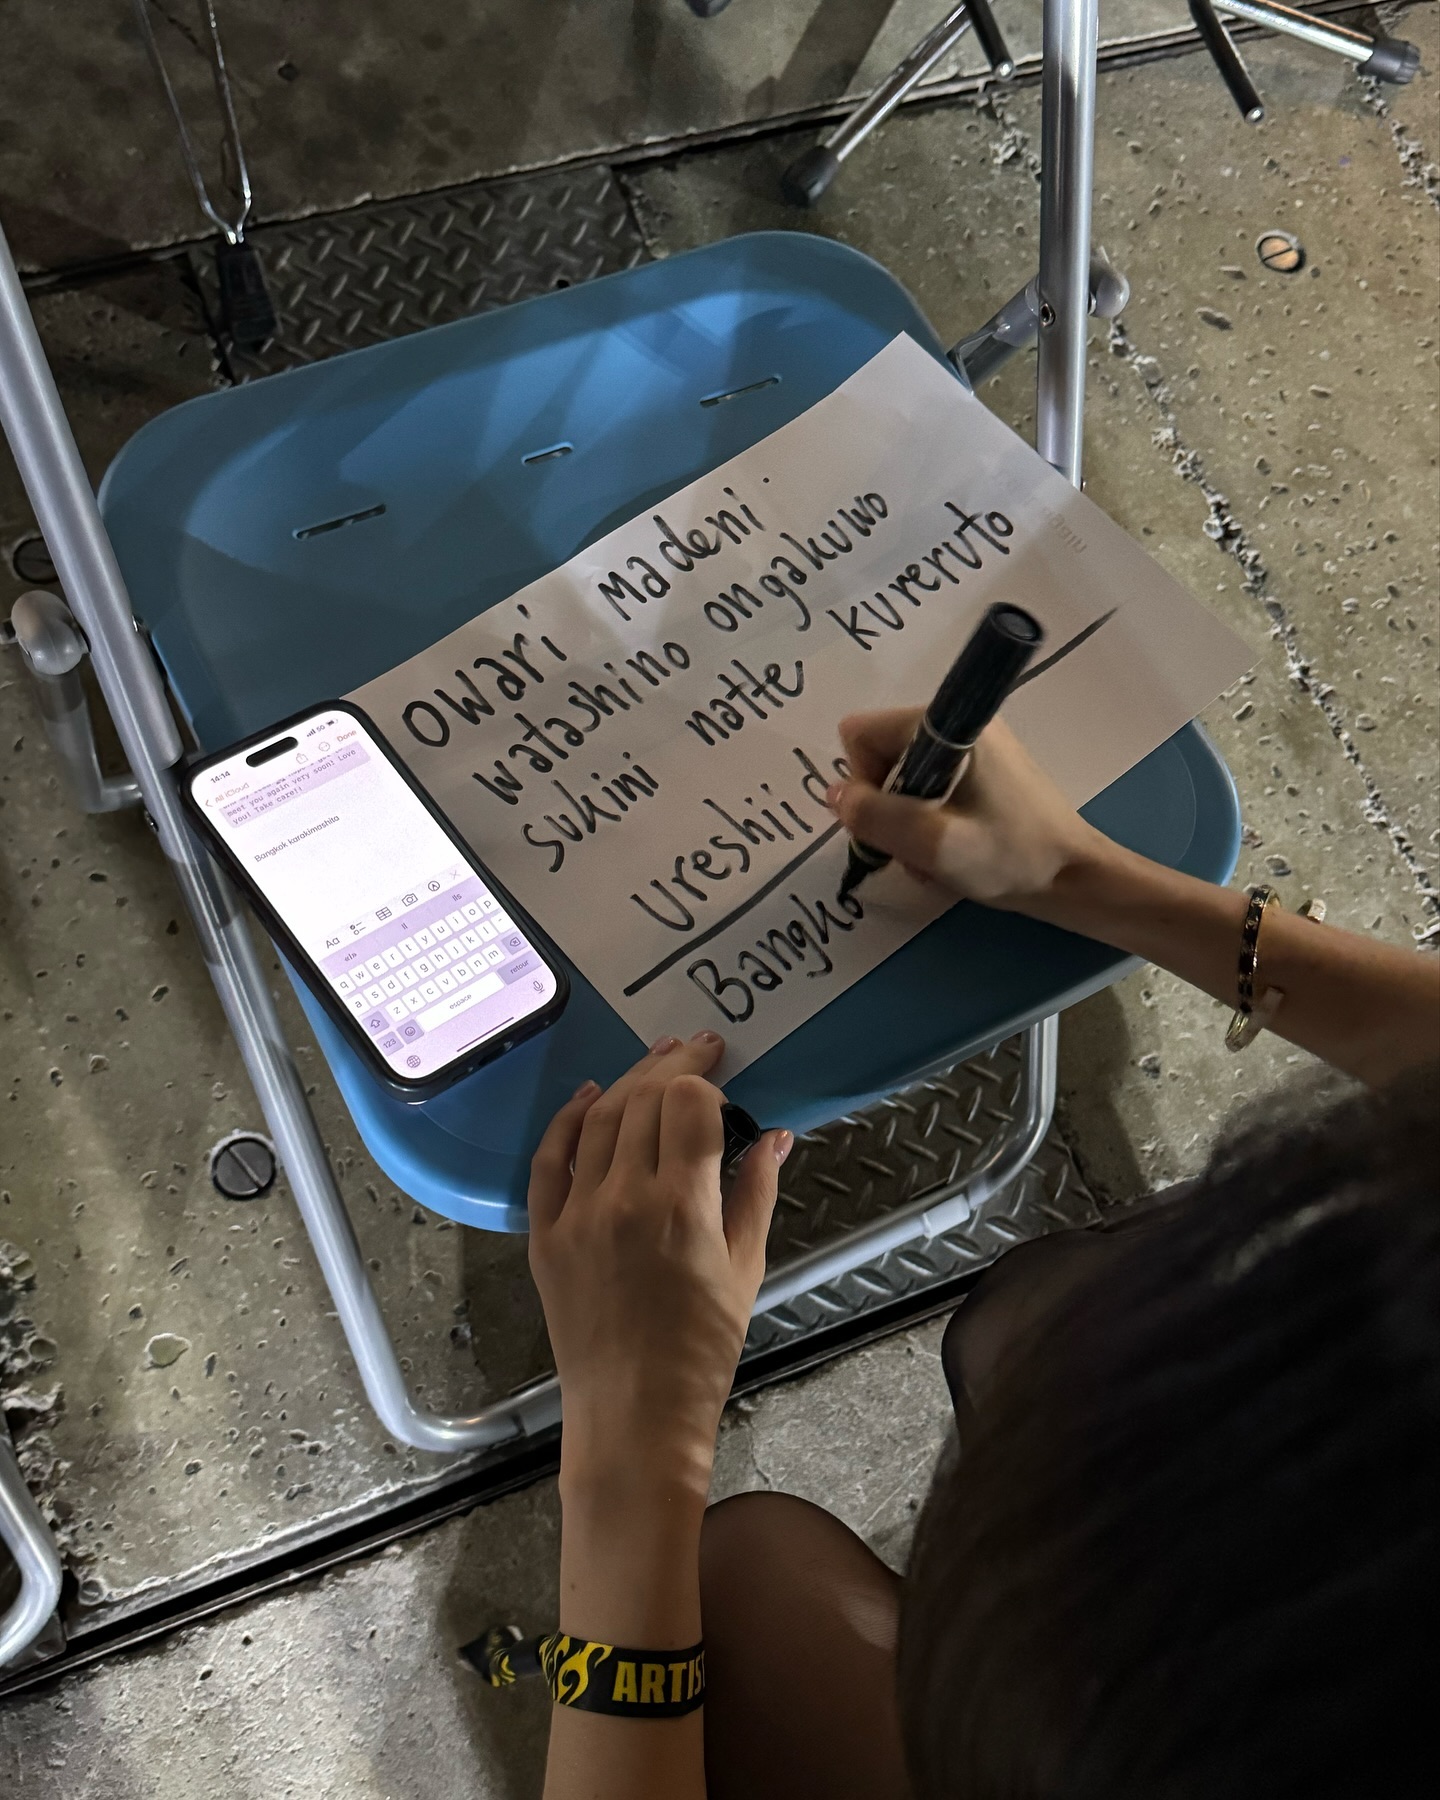 owari madeni.
watashino ongakuwo
sukini natte kureruto
ureshii de
Bangko
14:14
All iCloud
Done
meet you again very soon! Love
you! Take care!!
Bangkok karakimashita
Aa
«ll»
ll
lls
q w e r t y u i o p
a s d f g h j k l
z x c v b n m
123
espace
retour
ARTIS